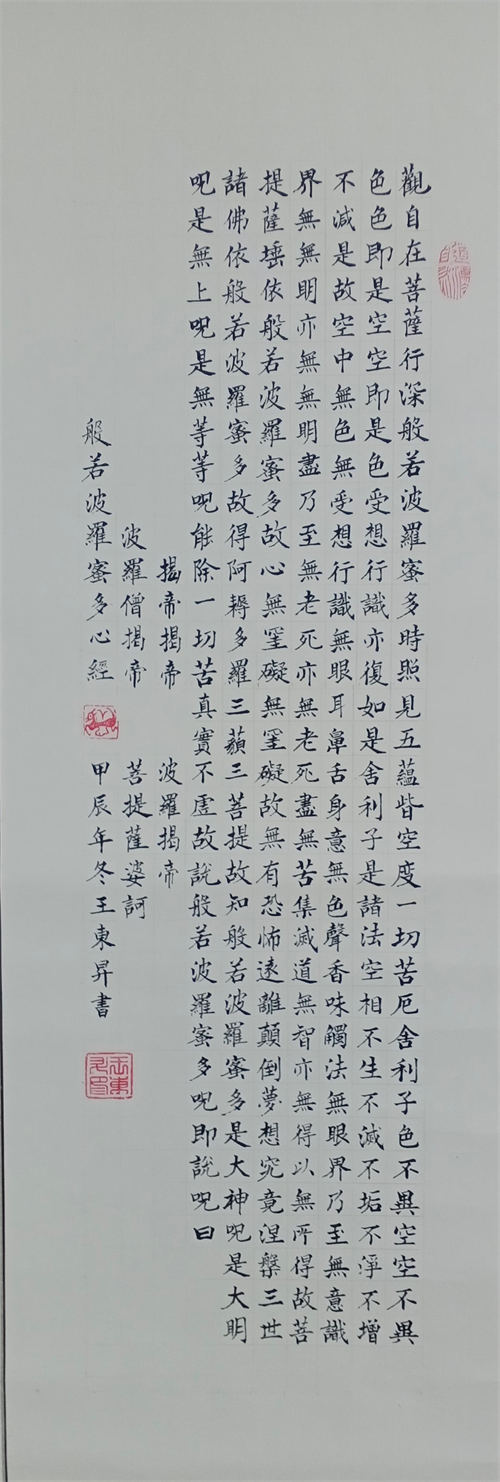 觀自在菩薩行深般若波羅蜜多時照見五蘊皆空度一切苦厄舍利子色不異空空不異
色色即是空空即是色受想行識亦復如是舍利子是諸法空相不生不滅不垢不淨不增
不減是故空中無色無受想行識無眼耳鼻舌身意無色聲香味觸法無眼界乃至無意識
界無無明亦無無明盡乃至無老死亦無老死盡無苦集滅道無智亦無得以無所得故菩
提薩埵依般若波羅蜜多故心無罣礙無罣礙故無有恐怖遠離顛倒夢想究竟涅槃三世
諸佛依般若波羅蜜多故得阿耨多羅三藐三菩提故知般若波羅蜜多是大神呪是大明
呪是無上呪是無等等呪能除一切苦真實不虛故說般若波羅蜜多呪即說呪曰
揭帝揭帝 波羅揭帝
波羅僧揭帝 菩提薩婆訶
般若波羅蜜多心經 甲辰年冬王東昇書